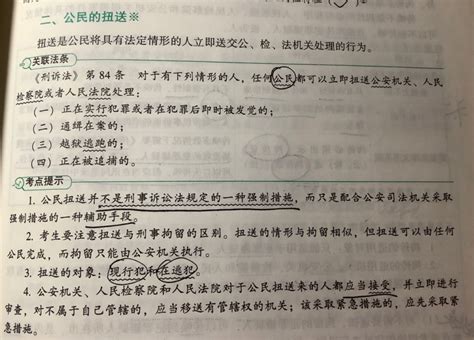 二、公民的扭送※
扭送是公民将具有法定情形的人立即送交公、检、法机关处理的行为。
关联法条
《刑诉法》第 84 条 对于有下列情形的人，任何公民都可以立即扭送公安机关、人民
检察院或者人民法院处理：
（一）正在实行犯罪或者在犯罪后即时被发觉的；
（二）通缉在案的；
（三）越狱逃跑的；
（四）正在被追捕的。
考点提示
1. 公民扭送并不是刑事诉讼法规定的一种强制措施，而只是配合公安司法机关采取
强制措施的一种辅助手段。
2. 考生要注意扭送与刑事拘留的区别。扭送的情形与拘留相似，但扭送可以由任何
公民完成，而拘留只能由公安机关执行。
3. 扭送的对象：现行犯和在逃犯。
4. 公安机关、人民检察院和人民法院对于公民扭送来的人都应当接受，并立即进行
审查，对不属于自己管辖的，应当移送有管辖权的机关；该采取紧急措施的，应先采取紧
急措施。